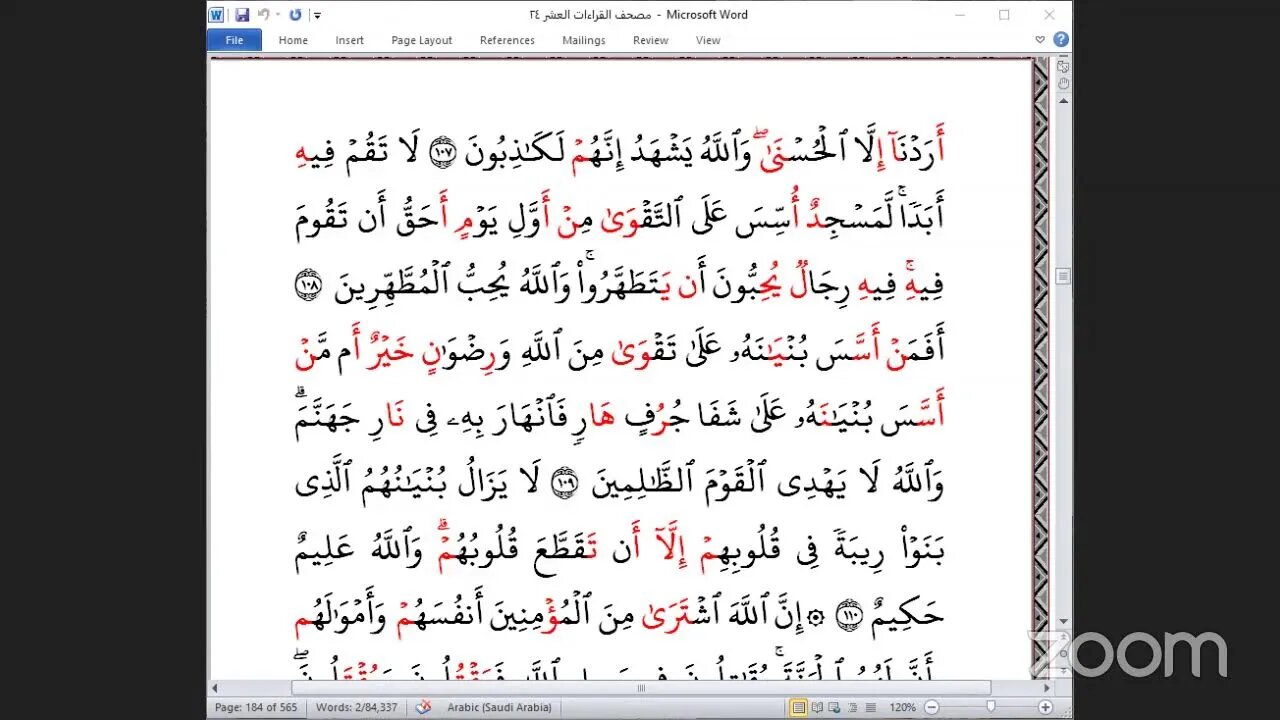 مصحف القراءات العشر ٢٤ - Microsoft Word
File Home Insert Page Layout References Mailings Review View
أَرَدْنَآ إِلَّا ٱلْحُسْنَىٰۖ وَٱللَّهُ يَشْهَدُ إِنَّهُمْ لَكَـٰذِبُونَ ١٠٧ لَا تَقُمْ فِيهِ
أَبَدًاۚ لَّمَسْجِدٌ أُسِّسَ عَلَى ٱلتَّقْوَىٰ مِنْ أَوَّلِ يَوْمٍ أَحَقُّ أَن تَقُومَ
فِيهِۚ فِيهِ رِجَالٌ يُحِبُّونَ أَن يَتَطَهَّرُوا۟ۚ وَٱللَّهُ يُحِبُّ ٱلْمُطَّهِّرِينَ ١٠٨
أَفَمَنْ أَسَّسَ بُنْيَـٰنَهُۥ عَلَىٰ تَقْوَىٰ مِنَ ٱللَّهِ وَرِضْوَٰنٍ خَيْرٌ أَم مَّنْ
أَسَّسَ بُنْيَـٰنَهُۥ عَلَىٰ شَفَا جُرُفٍ هَارٍ فَٱنْهَارَ بِهِۦ فِى نَارِ جَهَنَّمَۗ
وَٱللَّهُ لَا يَهْدِى ٱلْقَوْمَ ٱلظَّـٰلِمِينَ ١٠٩ لَا يَزَالُ بُنْيَـٰنُهُمُ ٱلَّذِى
بَنَوْا۟ رِيبَةً فِى قُلُوبِهِمْ إِلَّآ أَن تَقَطَّعَ قُلُوبُهُمْۗ وَٱللَّهُ عَلِيمٌ
حَكِيمٌ ١١٠ ۞ إِنَّ ٱللَّهَ ٱشْتَرَىٰ مِنَ ٱلْمُؤْمِنِينَ أَنفُسَهُمْ وَأَمْوَٰلَهُم
zoom
Page: 184 of 565 Words: 2/84,337 Arabic (Saudi Arabia) 120%